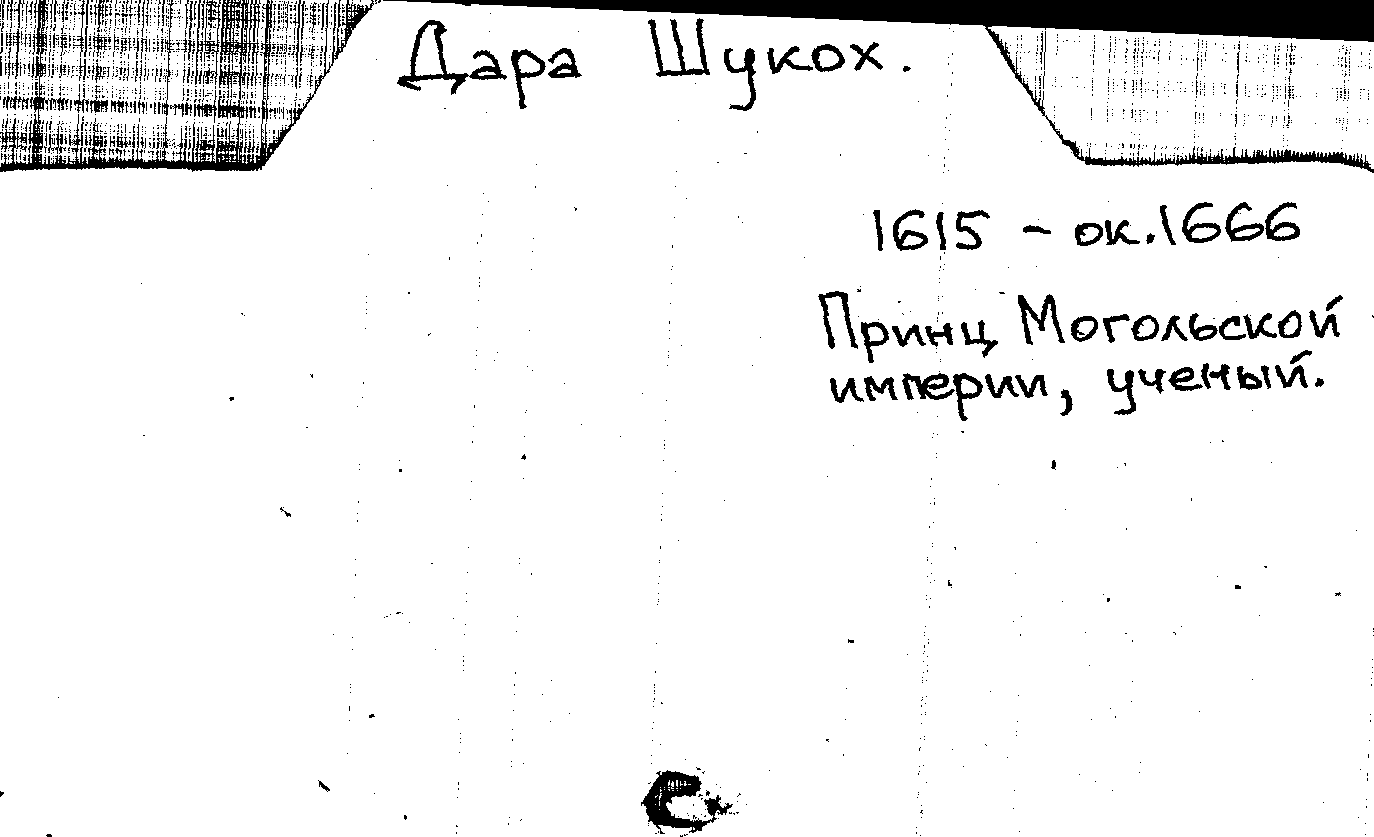 Дара Шукох.
1615 - ок.1666
Принц Могольской
империи, ученый.